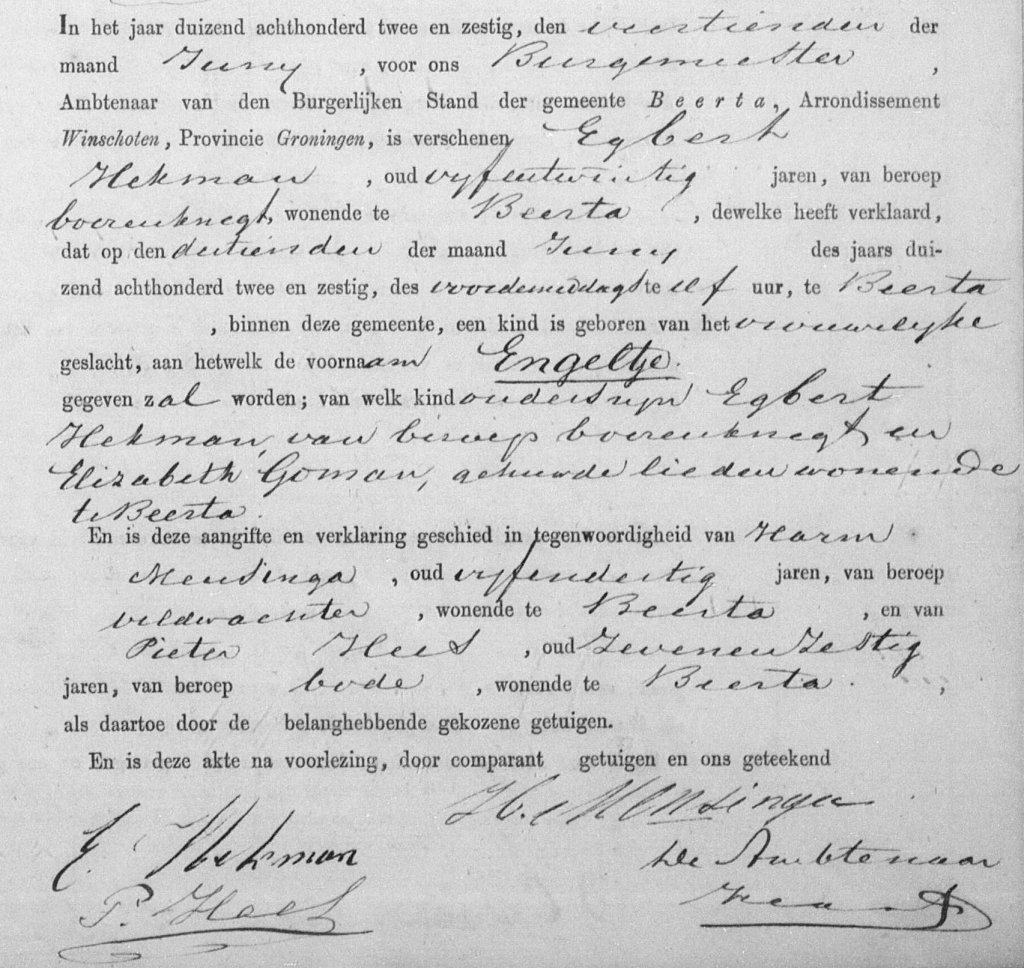 In het jaar duizend achthonderd twee en zestig, den veertienden der
maand Juny , voor ons Burgemeester ,
Ambtenaar van den Burgerlijken Stand der gemeente Beerta, Arrondissement
Winschoten, Provincie Groningen, is verschenen Egbert
Hekman , oud vyfentwintig jaren, van beroep
boerenknegt, wonende te Beerta , dewelke heeft verklaard,
dat op den dertienden der maand Juny des jaars dui-
zend achthonderd twee en zestig, des voordemiddags te elf uur, te Beerta
, binnen deze gemeente, een kind is geboren van het vrouwelyke
geslacht, aan hetwelk de voornaam Engeltje.
gegeven zal worden; van welk kind ouders zyn Egbert
Hekman, van beroep boerenknegt, en
Elizabeth Goman, gehuwde lieden wonende
te Beerta.
En is deze aangifte en verklaring geschied in tegenwoordigheid van Harm
Mensinga , oud vyfendertig jaren, van beroep
veldwachter , wonende te Beerta , en van
Pieter Hees , oud Zevenenzestig
jaren, van beroep bode , wonende te Beerta. ,
als daartoe door de belanghebbende gekozene getuigen.
En is deze akte na voorlezing, door comparant getuigen en ons geteekend
H. Mensinga
E. Hekman
De Ambtenaar
P. Hees